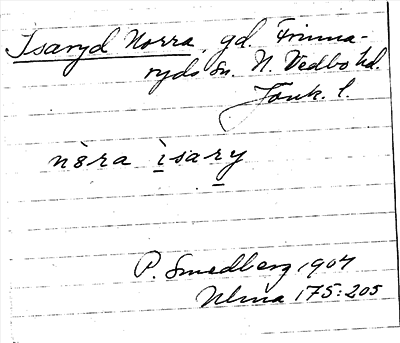 Isaryd Norra, gd. Finna-
ryds sn. N. Vedbo hd.
Jönk. l.
nòra ìsary
P. Smedberg 1907
Ulma 175:205